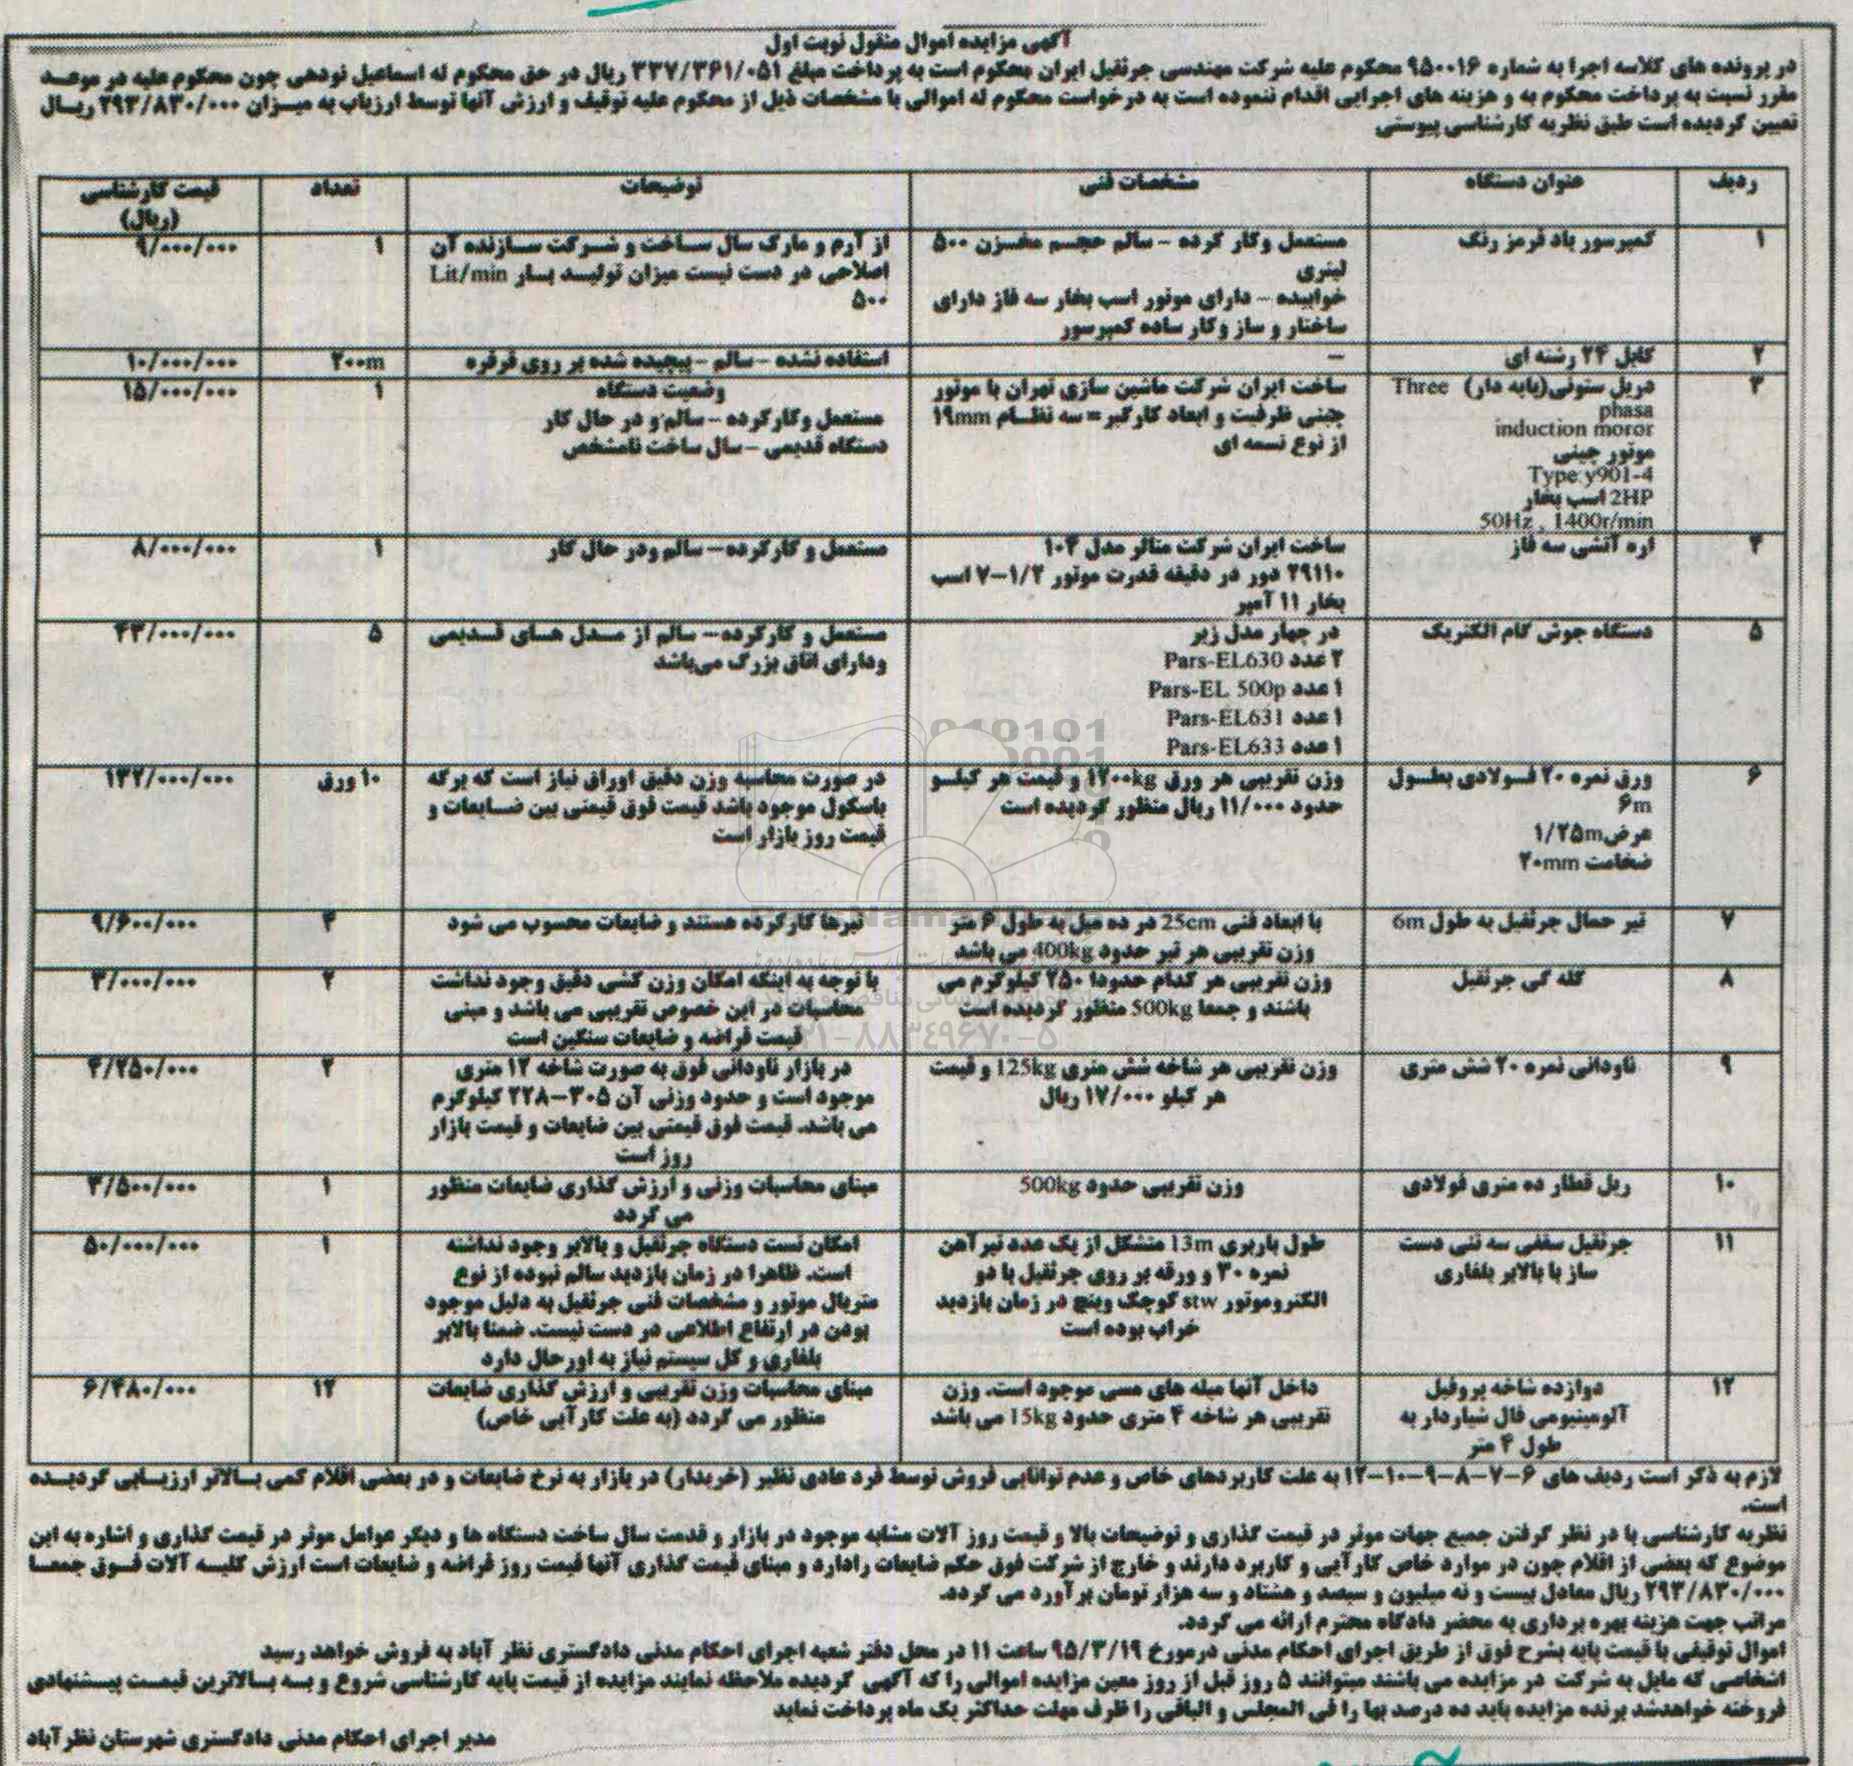 آگهی مزایده اموال منقول نوبت اول
در پرونده های کلاسه اجرا به شماره ۹۵۰۰۱۶ محکوم علیه شرکت مهندسی جرثقیل ایران محکوم است به پرداخت مبلغ ۳۳۷/۳۶۱/۰۵۱ ریال در حق محکوم له اسماعیل نودهی چون محکوم علیه در موعد
مقرر نسبت به پرداخت محکوم به و هزینه های اجرایی اقدام ننموده است به درخواست محکوم له اموالی با مشخصات ذیل از محکوم علیه توقیف و ارزش آنها توسط ارزیاب به میزان ۲۹۳/۸۳۰/۰۰۰ ریال
تعیین گردیده است طبق نظریه کارشناسی پیوستی
ردیف عنوان دستگاه مشخصات فنی توضیحات تعداد قیمت کارشناسی
(ریال)
۱ کمپرسور باد قرمز رنگ مستعمل وکار کرده - سالم حجم مخزن ۵۰۰ از آرم و مارک سال ساخت و شرکت سازنده آن ۱ ۹/۰۰۰/۰۰۰
لیتری اصلاحی در دست نیست میزان تولید بار Lit/min
خوابیده - دارای موتور اسب بخار سه فاز دارای ۵۰۰
ساختار و ساز وکار ساده کمپرسور
۲ کابل ۲۴ رشته ای - استفاده نشده - سالم - پیچیده شده بر روی قرقره ۲۰۰m ۱۰/۰۰۰/۰۰۰
۳ دریل ستونی(پایه دار) Three ساخت ایران شرکت ماشین سازی تهران با موتور وضعیت دستگاه ۱ ۱۵/۰۰۰/۰۰۰
phasa چینی ظرفیت و ابعاد کارگیر = سه نظام ۱۹mm مستعمل وکارکرده - سالم و در حال کار
induction moror از نوع تسمه ای دستگاه قدیمی - سال ساخت نامشخص
موتور چینی
Type:y901-4
2HP اسب بخار
50Hz , 1400r/min
۴ اره آتشی سه فاز ساخت ایران شرکت متالر مدل ۱۰۴ مستعمل و کارکرده- سالم ودر حال کار ۱ ۸/۰۰۰/۰۰۰
۲۹۱۱۰ دور در دقیقه قدرت موتور ۱/۲-۷ اسب
بخار ۱۱ آمپر
۵ دستگاه جوش گام الکتریک در چهار مدل زیر مستعمل و کارکرده- سالم از مدل های قدیمی ۵ ۴۳/۰۰۰/۰۰۰
۲ عدد Pars-EL630 ودارای اتاق بزرگ می‌باشد
۱ عدد Pars-EL 500p
۱ عدد Pars-EL631
۱ عدد Pars-EL633
۶ ورق نمره ۲۰ فولادی بطول وزن تقریبی هر ورق ۱۲۰۰kg و قیمت هر کیلو در صورت محاسبه وزن دقیق اوراق نیاز است که برگه ۱۰ ورق ۱۳۲/۰۰۰/۰۰۰
۶m حدود ۱۱/۰۰۰ ریال منظور گردیده است باسکول موجود باشد قیمت فوق قیمتی بین ضایعات و
عرض۱/۲۵m قیمت روز بازار است
ضخامت ۲۰mm
۷ تیر حمال جرثقیل به طول 6m با ابعاد فنی 25cm در ده میل به طول ۶ متر تیرها کارکرده هستند و ضایعات محسوب می شود ۴ ۹/۶۰۰/۰۰۰
وزن تقریبی هر تیر حدود 400kg می باشد
۸ کله گی جرثقیل وزن تقریبی هر کدام حدودا ۲۵۰ کیلوگرم می با توجه به اینکه امکان وزن کشی دقیق وجود نداشت ۲ ۳/۰۰۰/۰۰۰
باشند و جمعا 500kg منظور گردیده است محاسبات در این خصوص تقریبی می باشد و مبنی
قیمت قراضه و ضایعات سنگین است
۹ ناودانی نمره ۲۰ شش متری وزن تقریبی هر شاخه شش متری 125kg و قیمت در بازار ناودانی فوق به صورت شاخه ۱۲ متری ۲ ۴/۲۵۰/۰۰۰
هر کیلو ۱۷/۰۰۰ ریال موجود است و حدود وزنی آن ۳۰۵-۲۲۸ کیلوگرم
می باشد. قیمت فوق قیمتی بین ضایعات و قیمت بازار
روز است
۱۰ ریل قطار ده متری فولادی وزن تقریبی حدود 500kg مبنای محاسبات وزنی و ارزش گذاری ضایعات منظور ۱ ۳/۵۰۰/۰۰۰
می گردد
۱۱ جرثقیل سقفی سه تنی دست طول باربری 13m متشکل از یک عدد تیرآهن امکان تست دستگاه جرثقیل و بالابر وجود نداشته ۱ ۵۰/۰۰۰/۰۰۰
ساز با بالابر بلغاری نمره ۳۰ و ورقه بر روی جرثقیل با دو است. ظاهرا در زمان بازدید سالم نبوده از نوع
الکتروموتور stw کوچک وینچ در زمان بازدید متریال موتور و مشخصات فنی جرثقیل به دلیل موجود
خراب بوده است بودن در ارتفاع اطلاعی در دست نیست. ضمنا بالابر
بلغاری و کل سیستم نیاز به اورحال دارد
۱۲ دوازده شاخه پروفیل داخل آنها میله های مسی موجود است. وزن مبنای محاسبات وزن تقریبی و ارزش گذاری ضایعات ۱۲ ۶/۴۸۰/۰۰۰
آلومینیومی فال شیاردار به تقریبی هر شاخه ۴ متری حدود 15kg می باشد منظور می گردد (به علت کارآیی خاص)
طول ۴ متر
لازم به ذکر است ردیف های ۶-۷-۸-۹-۱۰-۱۲ به علت کاربردهای خاص و عدم توانایی فروش توسط فرد عادی نظیر (خریدار) در بازار به نرخ ضایعات و در بعضی اقلام کمی بالاتر ارزیابی گردیده
است.
نظریه کارشناسی با در نظر گرفتن جمیع جهات موثر در قیمت گذاری و توضیحات بالا و قیمت روز آلات مشابه موجود در بازار و قدمت سال ساخت دستگاه ها و دیگر عوامل موثر در قیمت گذاری و اشاره به این
موضوع که بعضی از اقلام چون در موارد خاص کارآیی و کاربرد دارند و خارج از شرکت فوق حکم ضایعات رادارد و مبنای قیمت گذاری آنها قیمت روز قراضه و ضایعات است ارزش کلیه آلات فوق جمعا
۲۹۳/۸۳۰/۰۰۰ ریال معادل بیست و نه میلیون و سیصد و هشتاد و سه هزار تومان برآورد می گردد.
مراتب جهت هزینه بهره برداری به محضر دادگاه محترم ارائه می گردد.
اموال توقیفی با قیمت پایه بشرح فوق از طریق اجرای احکام مدنی درمورخ ۹۵/۳/۱۹ ساعت ۱۱ در محل دفتر شعبه اجرای احکام مدنی دادگستری نظر آباد به فروش خواهد رسید
اشخاصی که مایل به شرکت در مزایده می باشند میتوانند ۵ روز قبل از روز معین مزایده اموالی را که آگهی گردیده ملاحظه نمایند مزایده از قیمت پایه کارشناسی شروع و به بالاترین قیمت پیشنهادی
فروخته خواهدشد برنده مزایده باید ده درصد بها را فی المجلس و الباقی را ظرف مهلت حداکثر یک ماه پرداخت نماید
مدیر اجرای احکام مدنی دادگستری شهرستان نظرآباد
۰۲۱-۸۸۳۴۹۶۷۰-۵